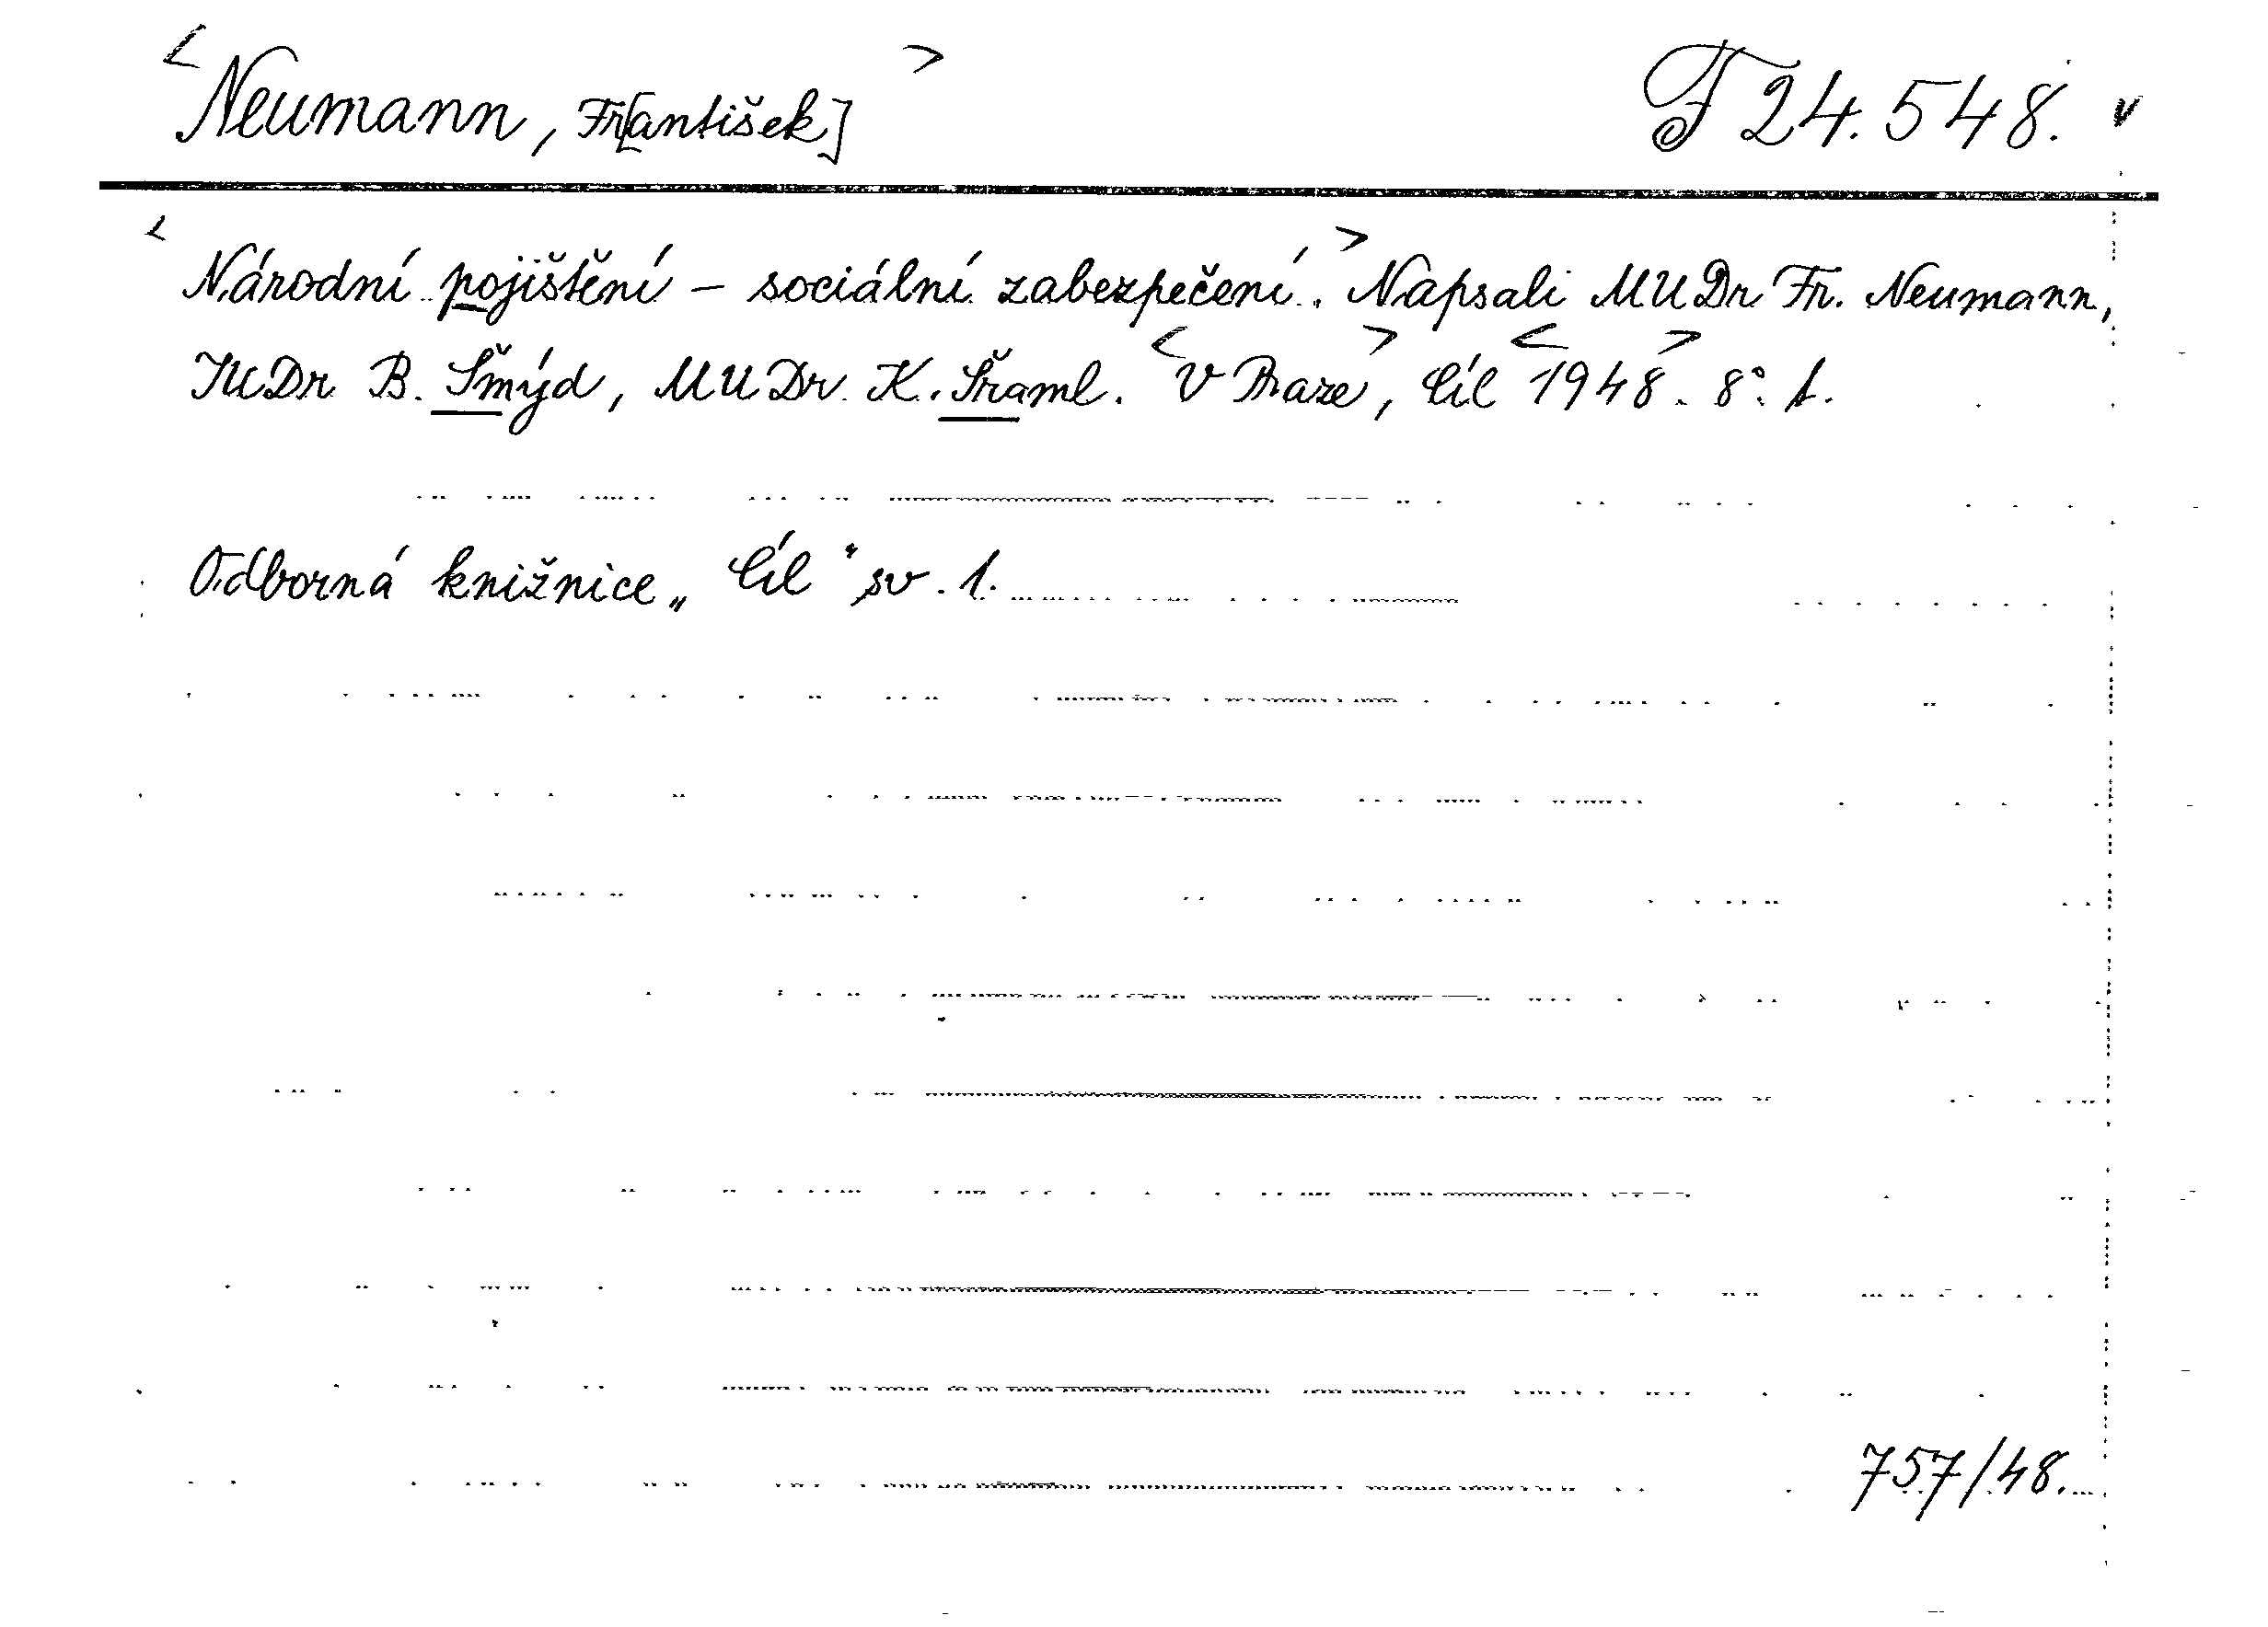 <Neumann, Fr[antišek]> F 24.548. v
<Národní pojištění - sociální zabezpečení.> Napsali MUDr Fr. Neumann,
JUDr B. Šmýd, MUDr. K. Šraml. <V Praze>, Cíl <1948>. 8°. 1.
Odborná knižnice „Cíl“ sv. 1.
757/48.